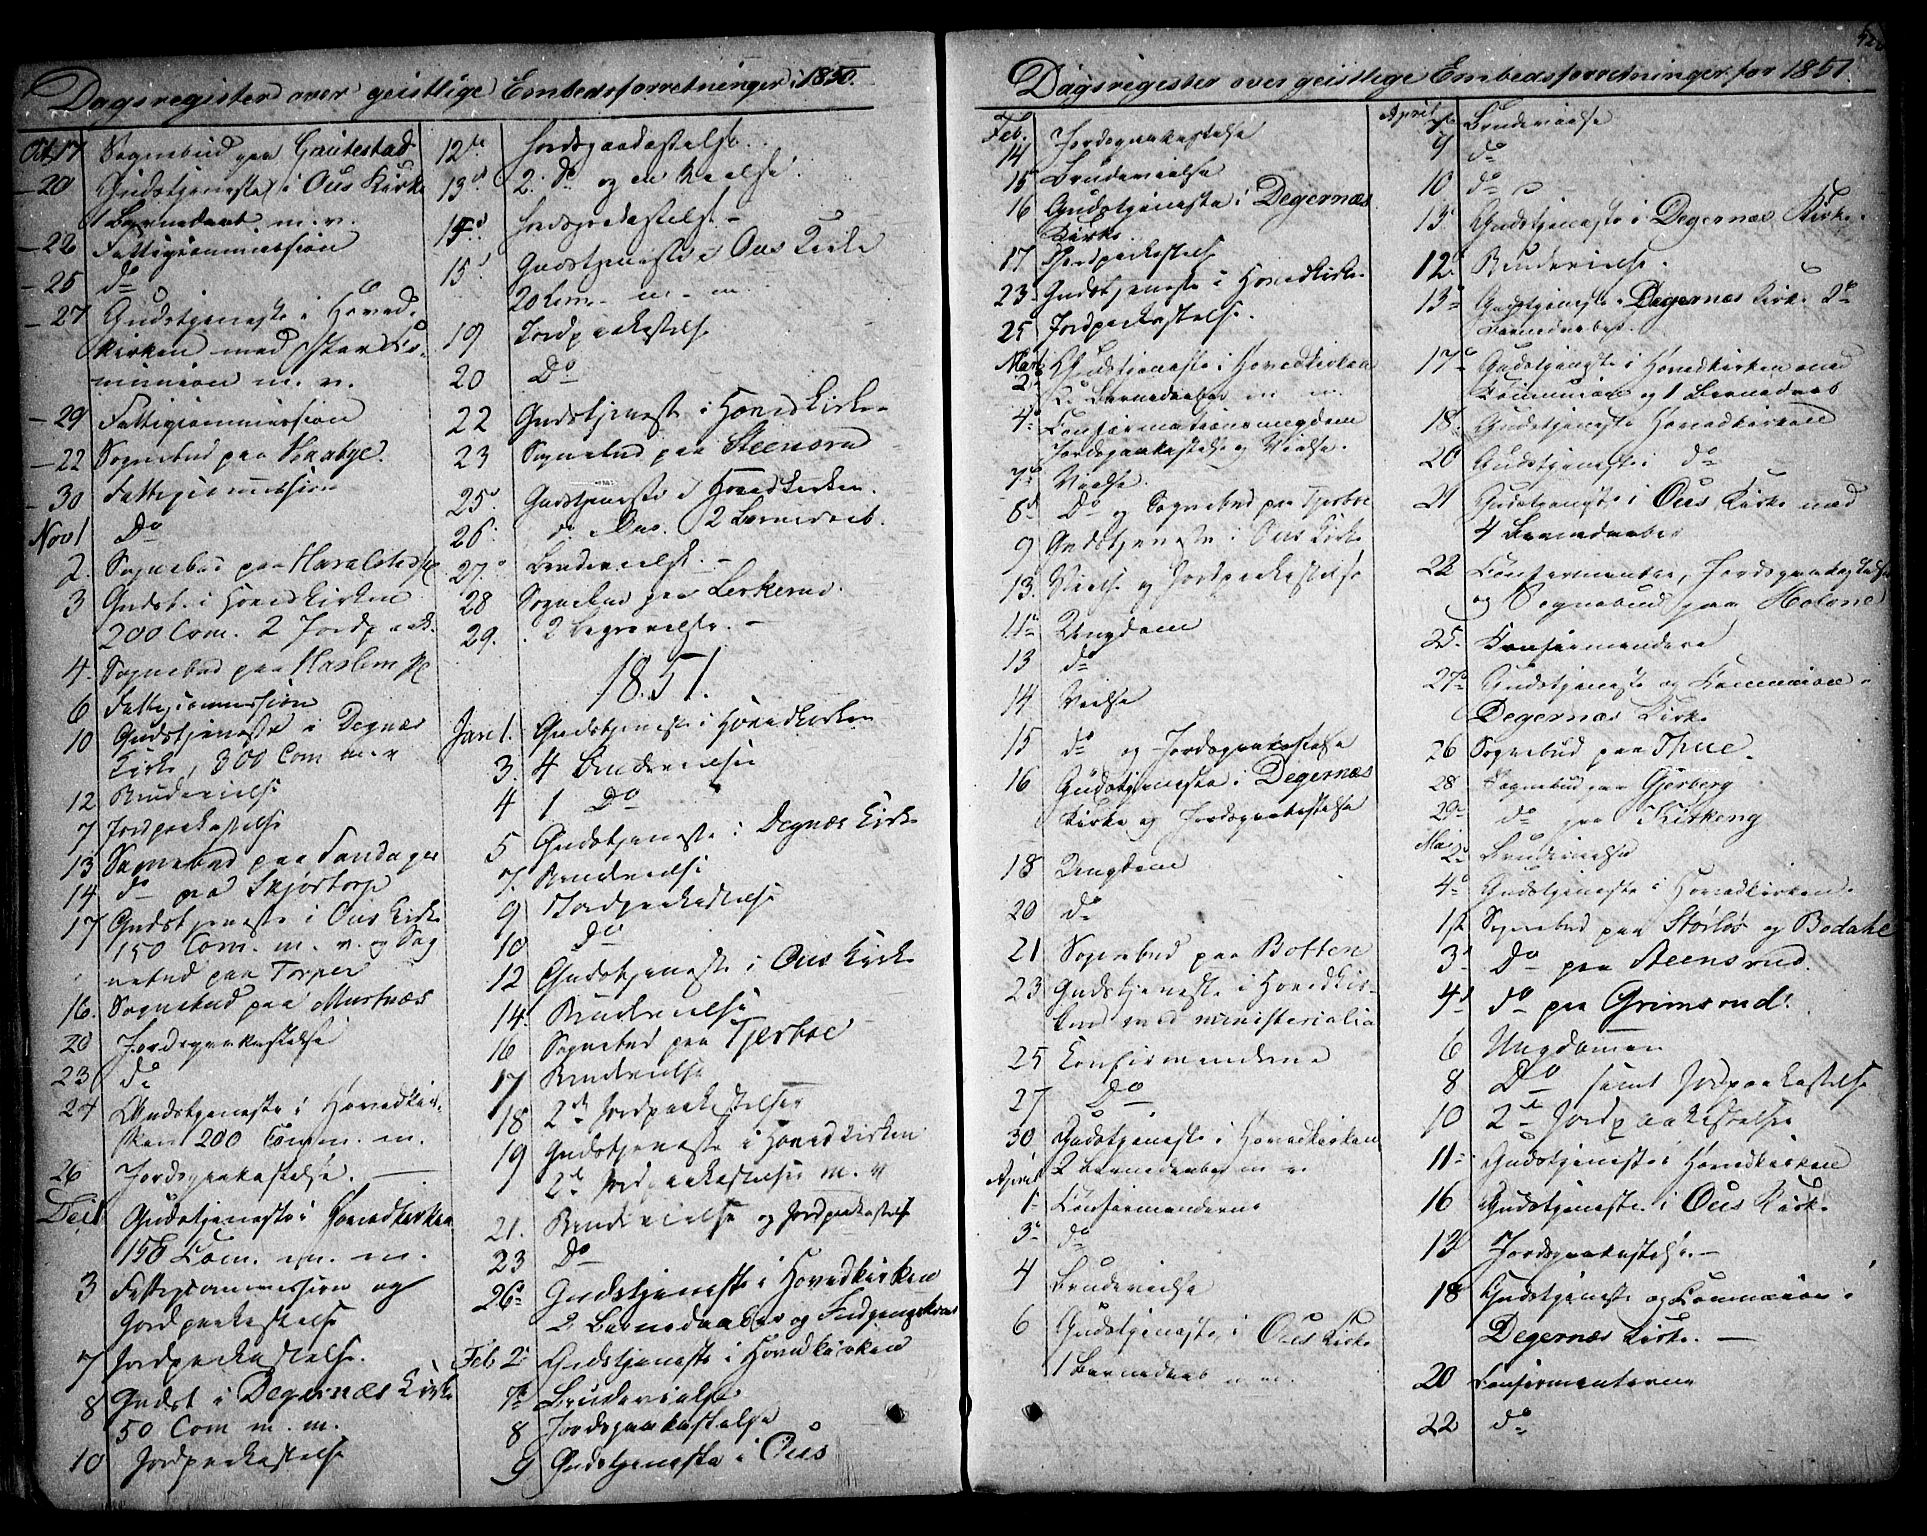 Dagsregister over geistlige Embedsforretninger i 1850.
Oct 17 Sognebud paa Grütestad
– 20 Gudstjeneste i Ous Kirke
1 Barnedaab m. v.
– 22 Fattigcommission
– 25 do
– 27 Gudstjeneste i Hoved-
kirken med stor Co-
munion m. v.
– 29 Fattigcommission
– 22 Sognebud paa Kaabye.
– 30 Fattigcommission
Nov 1 Do
2. Sognebud paa Haralstad
3 Gudst. i Hovedkirken
200 Com. 2 Jordpaak.
4. Sognebud paa Haslem
6 Fattigcommission
10 Gudstjeneste i Degnæs
Kirke, 300 Com m. v
12 Brudevielse
7 Jordpaakastelse
13 Sognebud paa Sandager
14 do paa Skjørtorp
17 Gudstjeneste i Ous Kirke
150 Com. m. v. og Sog
nebud paa Torper
16. Sognebud paa Mustnæs
20 Jordspaakastelse
23 do
24 Gudstjeneste i Hovedkir-
ken 200 Comm. m.
26 Jordspaakastelse. —
Dec 1 Gudstjeneste i Hovedkirken
150 Com. m. m.
3 Fattigcommission og
Jordpaakastelse
7 Jordpaakastelse.
8 Gudst i Degernæs Kirke
50 Com m. m.
10 Jordpaakastelse
12te Jordspaakastelse.
13d 2 do og en Vielse.
14d Jordspaakastelse –
15d Gudstjeneste i Ous Kirke
20 Com – m – m.
19 Jordpaakastelse
20 Do
22 Gudstjeneste i Hovedkirken
23 Sognebud paa Steensrud
25d Gudstjeneste i Hovedkirken.
26. do Ous. 2 Barnedaab.
27. Brudevielse. –
28 Sognebud paa Lerkerud.
29. 2 Begravelse. –
1851.
Jan 1. Gudstjeneste i Hovedkirken
3. 4 Brudevielser
4 1 Do
5 Gudstjeneste i Degnæs Kirke
7. Brudevielse
9 Jordpaakastelse
10 Do
12 Gudstjeneste i Ous Kirke
14. Brudevielse
16 Sognebud paa Tjerboe
17 Brudevielse
18 2de Jordpaakastelser
19 Gudstjeneste i Hovedkirken
2de Jordpaakastelser m. v
21. Brudevielse og Jordpaakastelse
23 Do
26d Gudstjeneste i Hovedkirken
2 Barnedaaber og
Feb 2d Gudstjeneste i Hovedkirken
7de Brudevielse
8 Jordspaakastelse
9 Gudstjeneste i Ous
Dagsregister over geistlige Embedsforretninger for 1851.
Feb.
14 Jordspaakastelse
15 Brudevielse
16 Gudstjeneste i Degernæs
Kirke
17 Jordpaakastelse
23 Gudstjeneste i Hovedkirke
25 Jordpaakastelse.
Marts
2d Gudstjeneste i Hovedkirken
2 Barnedaaber m m.
4d Confirmationsungdom
Jordspaakastelse og Vielse.
7d Vielse.
8d Do og Sognebud paa Tjerboe
9 Gudstjeneste i Ous Kirke
13. Vielse og Jordpaakastelse
11te Ungdom
13 do
14 Vielse
15 do og Jordspaakastelse
16 Gudstjeneste i Degernæs
Kirke og Jordspaakastelse
18 Ungdom
20 do
21 Sognebud paa Botten
23 Gudstjeneste i Hovedkir-
ken med ministerialia
25 Confirmanderne
27 Do
30 Gudstjeneste i Hovedkirken
2 Barnedaaber m v.
April
1. Confirmanderne
3d do
4 Brudevielse
6 Gudstjeneste i Ous Kirke
1 Barnedaab m m.
April 7de Brudevielse
9 do
10 do
13. Gudstjeneste i Degernæs Kirke.
12d Brudevielse.
13d Gudstjeneste i Degernæs Kirke 2de
Barnedaaber.
17d Gudstjeneste i Hovedkirken med
Communion og 1 Barnedaab
18. Gudstjeneste Hovedkirken
20 Gudstjeneste i do
21 Gudstjeneste i Ous Kirke med
4 Barnedaaber
22 Confirmanter, Jordspaakastelse
og Sognebud paa
25. Confirmandere
27d Gudstjeneste og Communion i
Degernæs Kirke
26 Sognebud paa Thue
28 Sognebud paa Gjerberg
29d do paa Kirkeng
Mai
2d Brudevielse
4d Gudstjeneste i Hovedkirken.
1st Sognebud paa Storløs og Bodahl
3d Do paa Steensrud.
4d do paa Grimsrud.
6 Ungdommen
8 Do samt Jordpaakastelse
10 2de Jordpaakastelser
11– Gudstjeneste i Hovedkirken
16 Gudstjeneste i Ous Kirke
13d Jordspaakastelse. –
18 Gudstjeneste og Communion i
Degernæs Kirke. —
20 Confirmanterne
22 do